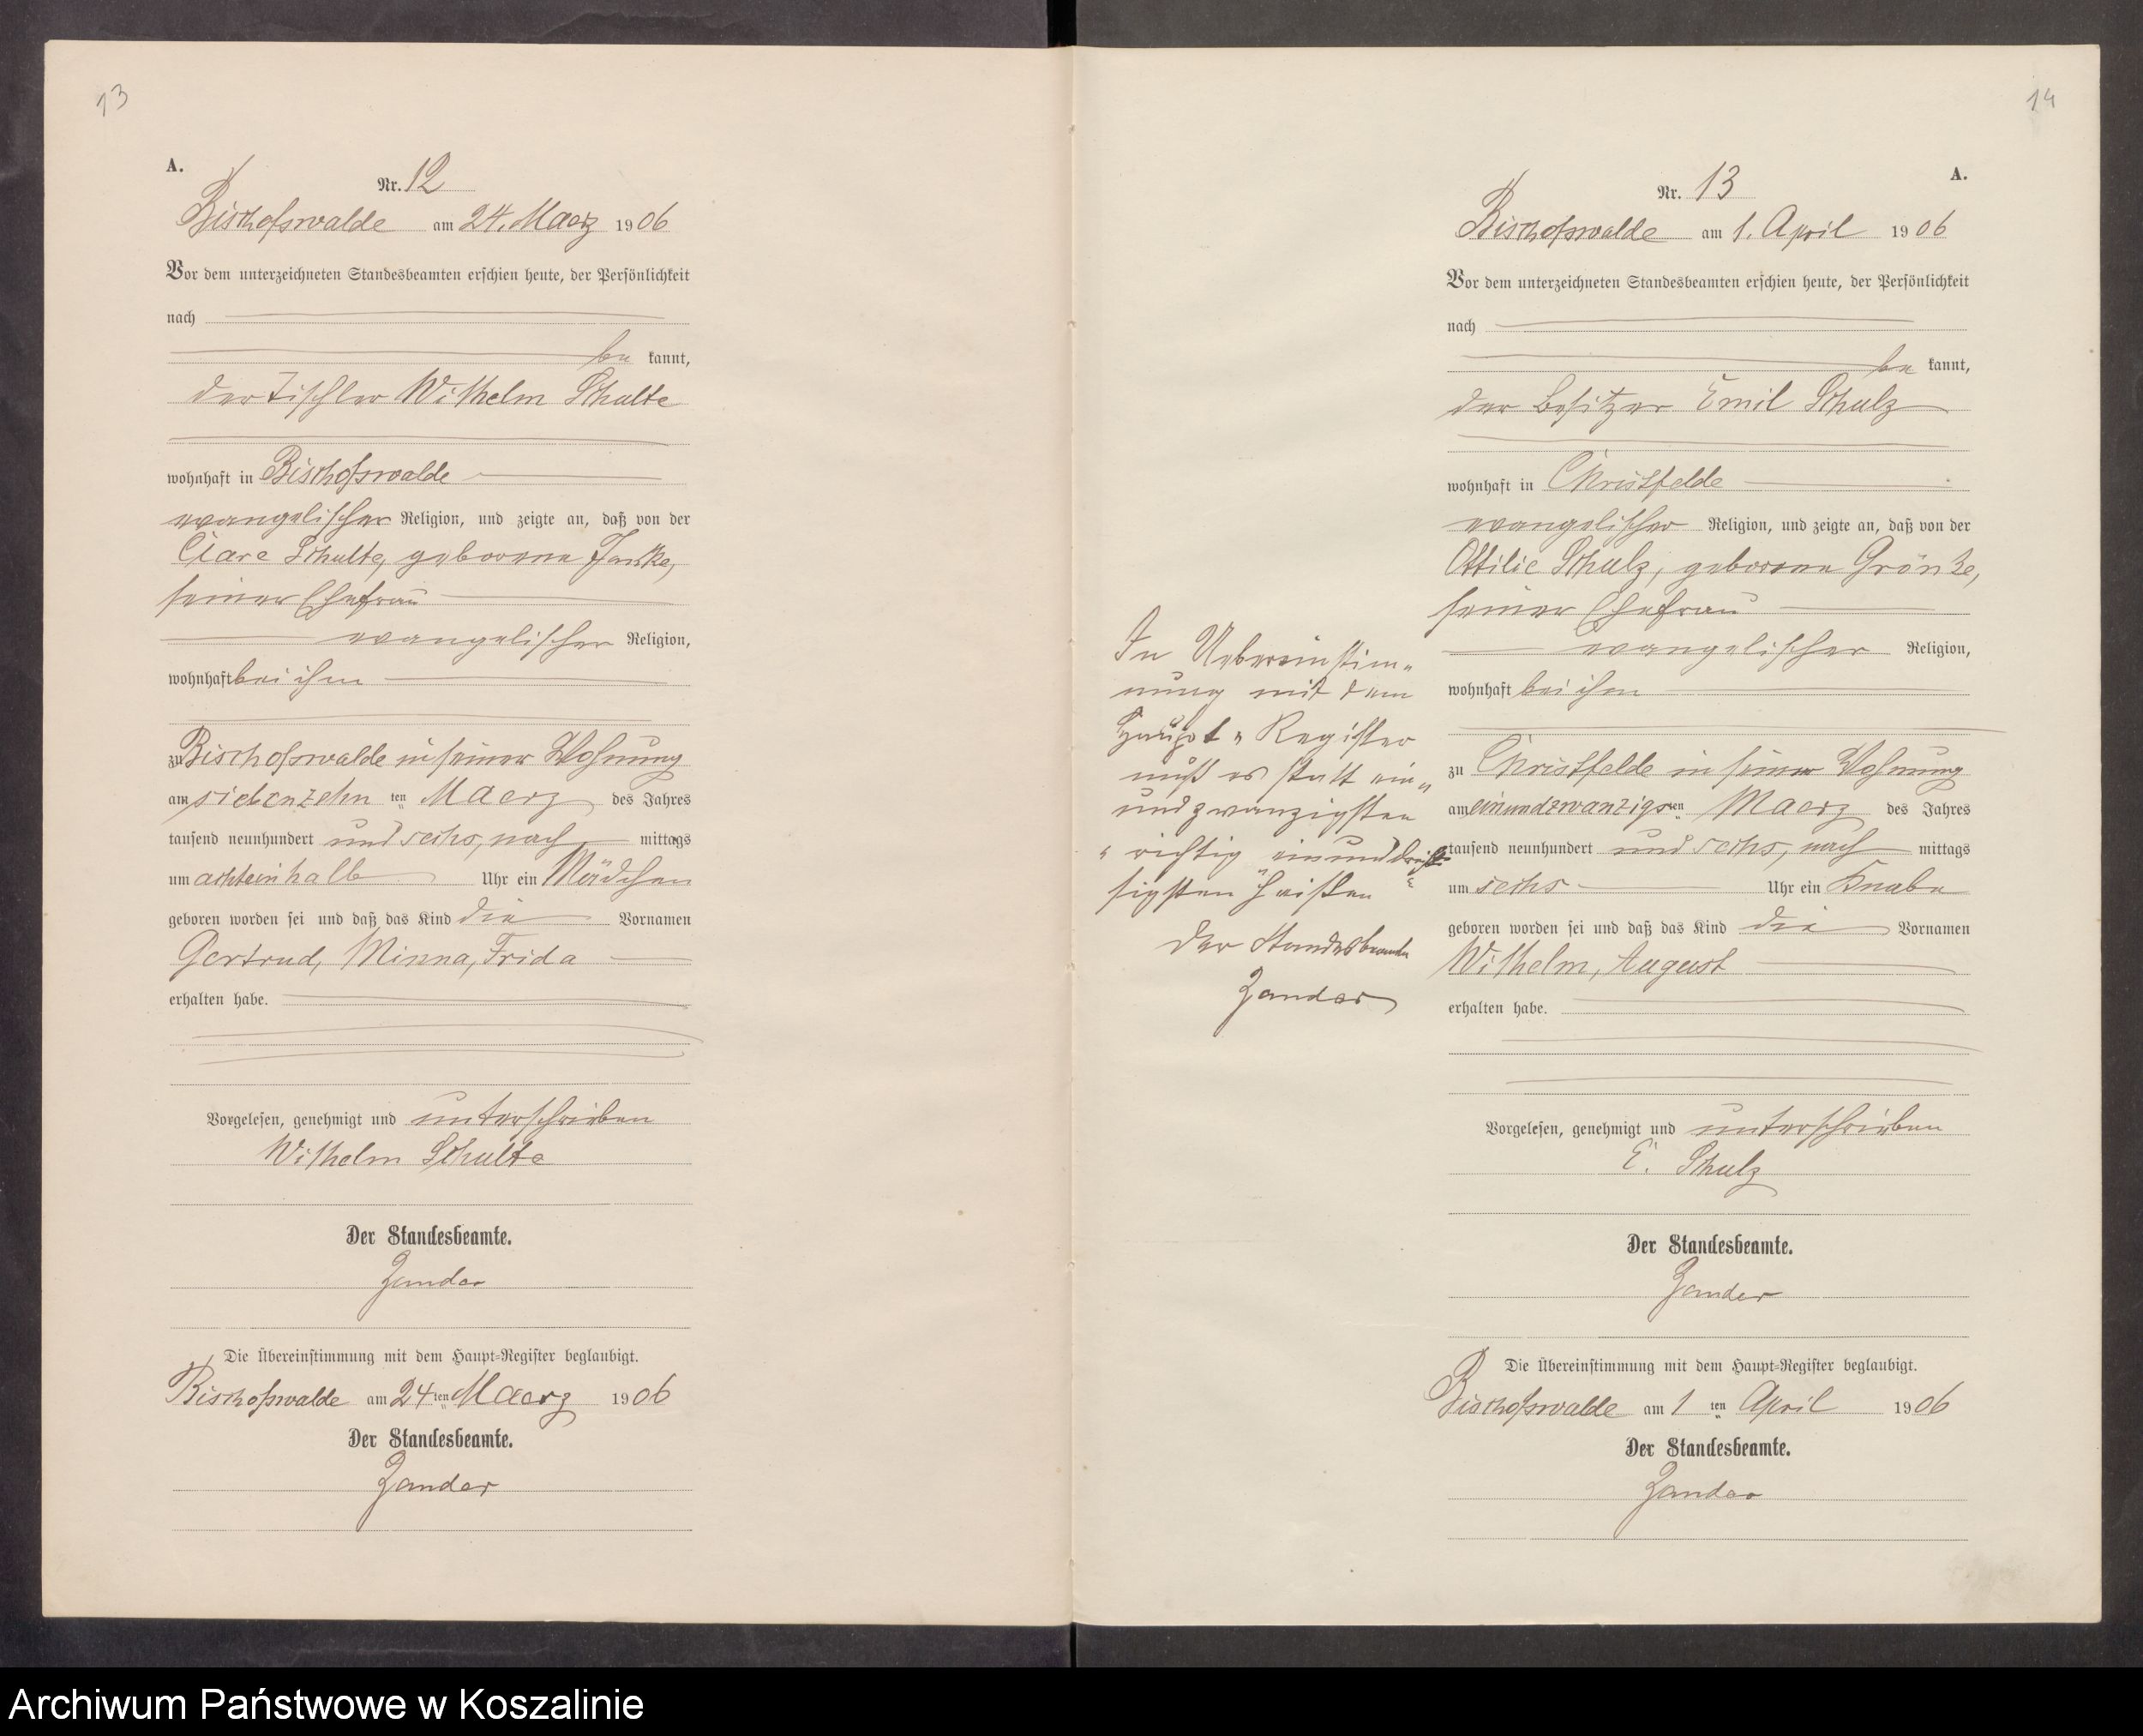 13
A.
Nr. 12
Bischofswalde am 24. Maerz 1906
Vor dem unterzeichneten Standesbeamten erschien heute, der Persönlichkeit
nach
be kannt,
der Tischler Wilhelm Schulte
wohnhaft in Bischofswalde
evangelischer Religion, und zeigte an, daß von der
Clare Schulte, geborene Janke,
seiner Ehefrau
evangelischer Religion,
wohnhaft bei ihm
zu Bischofswalde in seiner Wohnung
am siebenzehn ten Maerz des Jahres
tausend neunhundert und sechs, nach mittags
um achteinhalb Uhr ein Mädchen
geboren worden sei und daß das Kind die Vornamen
Gertrud, Minna, Frida
erhalten habe.
Vorgelesen, genehmigt und unterschrieben
Wilhelm Schulte
Der Standesbeamte.
Zander
Die Übereinstimmung mit dem Haupt-Register beglaubigt.
Bischofswalde am 24ten Maerz 1906
Der Standesbeamte.
Zander
14
A.
Nr. 13
Bischofswalde am 1. April 1906
Vor dem unterzeichneten Standesbeamten erschien heute, der Persönlichkeit
nach
be kannt,
der Besitzer Emil Schulz
wohnhaft in Christfelde
evangelischer Religion, und zeigte an, daß von der
Ottilie Schulz, geborene Grönke,
seiner Ehefrau
evangelischer Religion,
wohnhaft bei ihm
zu Christfelde in seiner Wohnung
am einundzwanzigsten Maerz des Jahres
tausend neunhundert und sechs, nach mittags
um sechs Uhr ein Knabe
geboren worden sei und daß das Kind die Vornamen
Wilhelm, August
erhalten habe.
Vorgelesen, genehmigt und unterschrieben
E. Schulz
Der Standesbeamte.
Zander
Die Übereinstimmung mit dem Haupt-Register beglaubigt.
Bischofswalde am 1 ten April 1906
Der Standesbeamte.
Zander
In Uebereinstim-
mung mit dem
Haupt-Register
muß es statt ein-
undzwanzigsten
richtig einunddreis-
sigsten heißen
Der Standesbeamte
Zander
Archiwum Państwowe w Koszalinie